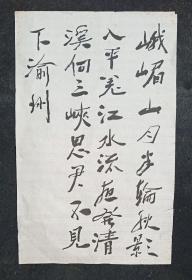 峨嵋山月半轮秋影
入平羌江水流夜发清
溪向三峡思君不见
下渝州